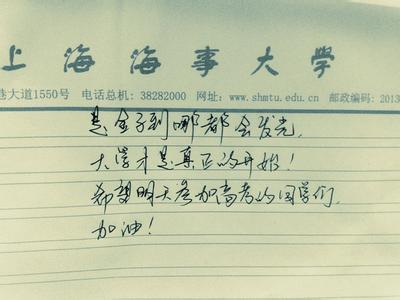 上海海事大学
巷大道1550号 电话总机: 38282000 网址: www.shmtu.edu.cn 邮政编码: 2013
是金子到哪都会发光,
大学才是真正的开始!
希望明天参加高考的同学们,
加油!